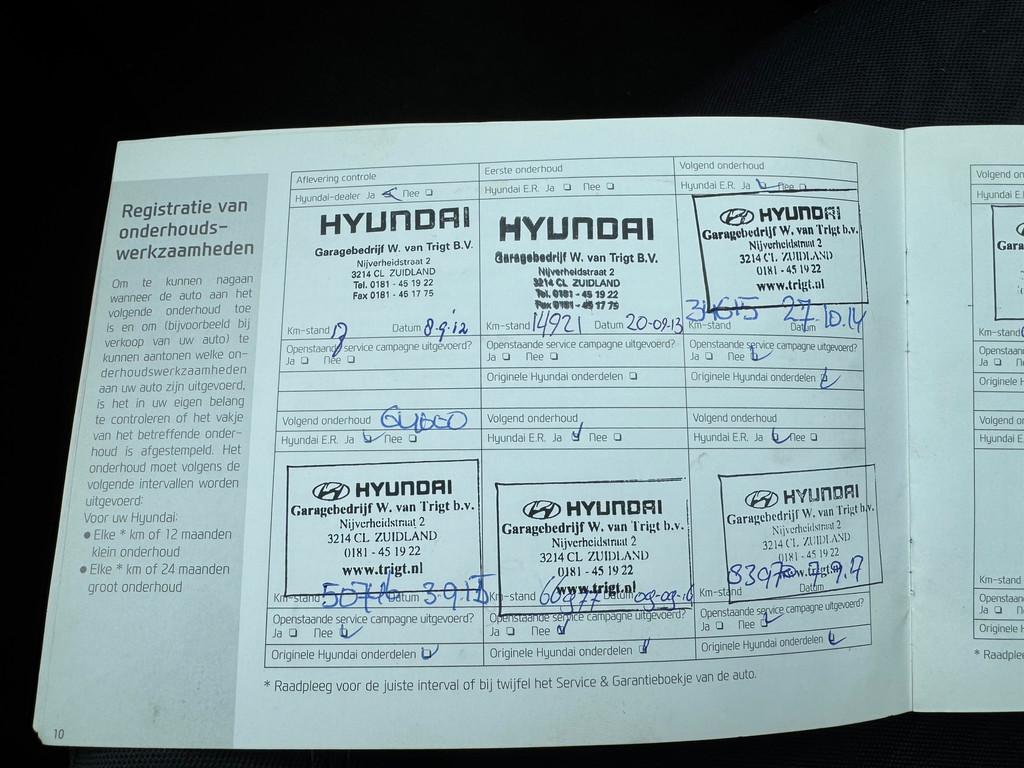 Registratie van
onderhouds-
werkzaamheden
Om te kunnen nagaan
wanneer de auto aan het
volgende onderhoud toe
is en om (bijvoorbeeld bij
verkoop van uw auto) te
kunnen aantonen welke on-
derhoudswerkzaamheden
aan uw auto zijn uitgevoerd,
is het in uw eigen belang
te controleren of het vakje
van het betreffende onder-
houd is afgestempeld. Het
onderhoud moet volgens de
volgende intervallen worden
uitgevoerd:
Voor uw Hyundai:
● Elke * km of 12 maanden
klein onderhoud
● Elke * km of 24 maanden
groot onderhoud
10
Aflevering controle
Hyundai-dealer Ja Nee
HYUNDAI
Garagebedrijf W. van Trigt B.V.
Nijverheidstraat 2
3214 CL ZUIDLAND
Tel. 0181 - 45 19 22
Fax 0181 - 45 17 75
Km-stand Datum 8-9-12
Openstaande service campagne uitgevoerd?
Ja Nee
Eerste onderhoud
Hyundai E.R. Ja Nee
HYUNDAI
Garagebedrijf W. van Trigt B.V.
Nijverheidstraat 2
3214 CL ZUIDLAND
Tel. 0181 - 45 19 22
Fax 0181 - 45 17 75
Km-stand 14921 Datum 20-09-13
Openstaande service campagne uitgevoerd?
Ja Nee
Originele Hyundai onderdelen
Volgend onderhoud
Hyundai E.R. Ja Nee
HYUNDAI
Garagebedrijf W. van Trigt b.v.
Nijverheidstraat 2
3214 CL ZUIDLAND
0181 - 45 19 22
www.trigt.nl
Km-stand 34615 Datum 27-10-14
Openstaande service campagne uitgevoerd?
Ja Nee
Originele Hyundai onderdelen
Volgend onderhoud
Hyundai E.R. Ja Nee
HYUNDAI
Garagebedrijf W. van Trigt b.v.
Nijverheidstraat 2
3214 CL ZUIDLAND
0181 - 45 19 22
www.trigt.nl
Km-stand Datum 3-9-15
Openstaande service campagne uitgevoerd?
Ja Nee
Originele Hyundai onderdelen
Volgend onderhoud
Hyundai E.R. Ja Nee
HYUNDAI
Garagebedrijf W. van Trigt b.v.
Nijverheidstraat 2
3214 CL ZUIDLAND
0181 - 45 19 22
www.trigt.nl
Km-stand 66977 Datum 09-09-16
Openstaande service campagne uitgevoerd?
Ja Nee
Originele Hyundai onderdelen
Volgend onderhoud
Hyundai E.R. Ja Nee
HYUNDAI
Garagebedrijf W. van Trigt b.v.
Nijverheidstraat 2
3214 CL ZUIDLAND
0181 - 45 19 22
www.trigt.nl
Km-stand 83970 Datum
Openstaande service campagne uitgevoerd?
Ja Nee
Originele Hyundai onderdelen
* Raadpleeg voor de juiste interval of bij twijfel het Service & Garantieboekje van de auto.
Volgend
Hyundai
Km-stand
Ja
Originele
Volgend
Hyundai
Km-stand
Ja
Originele